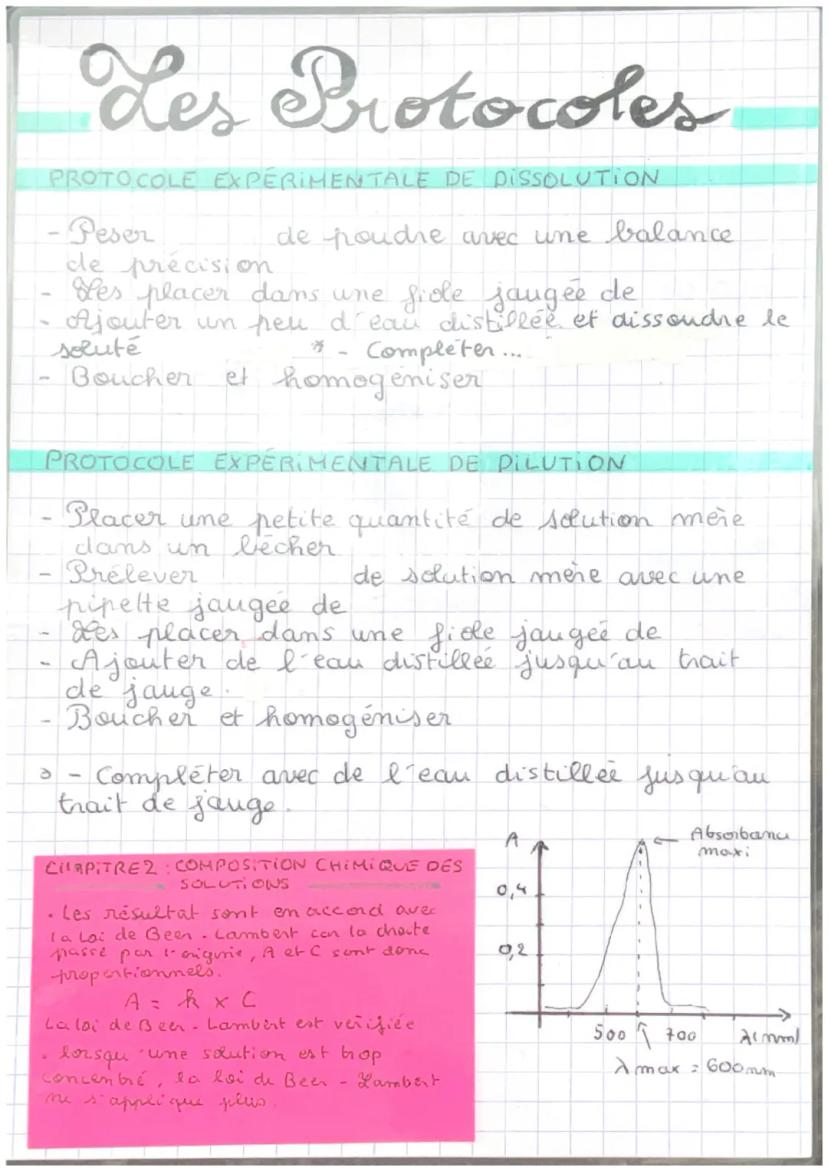 Les Protocoles
PROTOCOLE EXPÉRIMENTALE DE DISSOLUTION
- Peser de poudre avec une balance
de précision
- Les placer dans une fiole jaugée de
- Ajouter un peu d'eau distillée et dissoudre le
soluté * - Compléter...
- Boucher et homogéniser
PROTOCOLE EXPÉRIMENTALE DE DILUTION
- Placer une petite quantité de solution mère
dans un bécher
- Prélever de solution mère avec une
pipette jaugée de
- Les placer dans une fiole jaugée de
- Ajouter de l'eau distillée jusqu'au trait
de jauge.
- Boucher et homogéniser
- Compléter avec de l'eau distillée jusqu'au
trait de jauge.
CHAPITRE 2 : COMPOSITION CHIMIQUE DES
SOLUTIONS
• Les résultat sont en accord avec
la Loi de Beer - Lambert car la droite
passe par l'origine, A et C sont donc
proportionnels.
A = k x C
La loi de Beer - Lambert est vérifiée
• lorsqu'une solution est trop
concentré, la loi de Beer - Lambert
ne s'applique plus
A
Absorbance
maxi
0,4
0,2
500 700 λ(nm)
λ max = 600nm